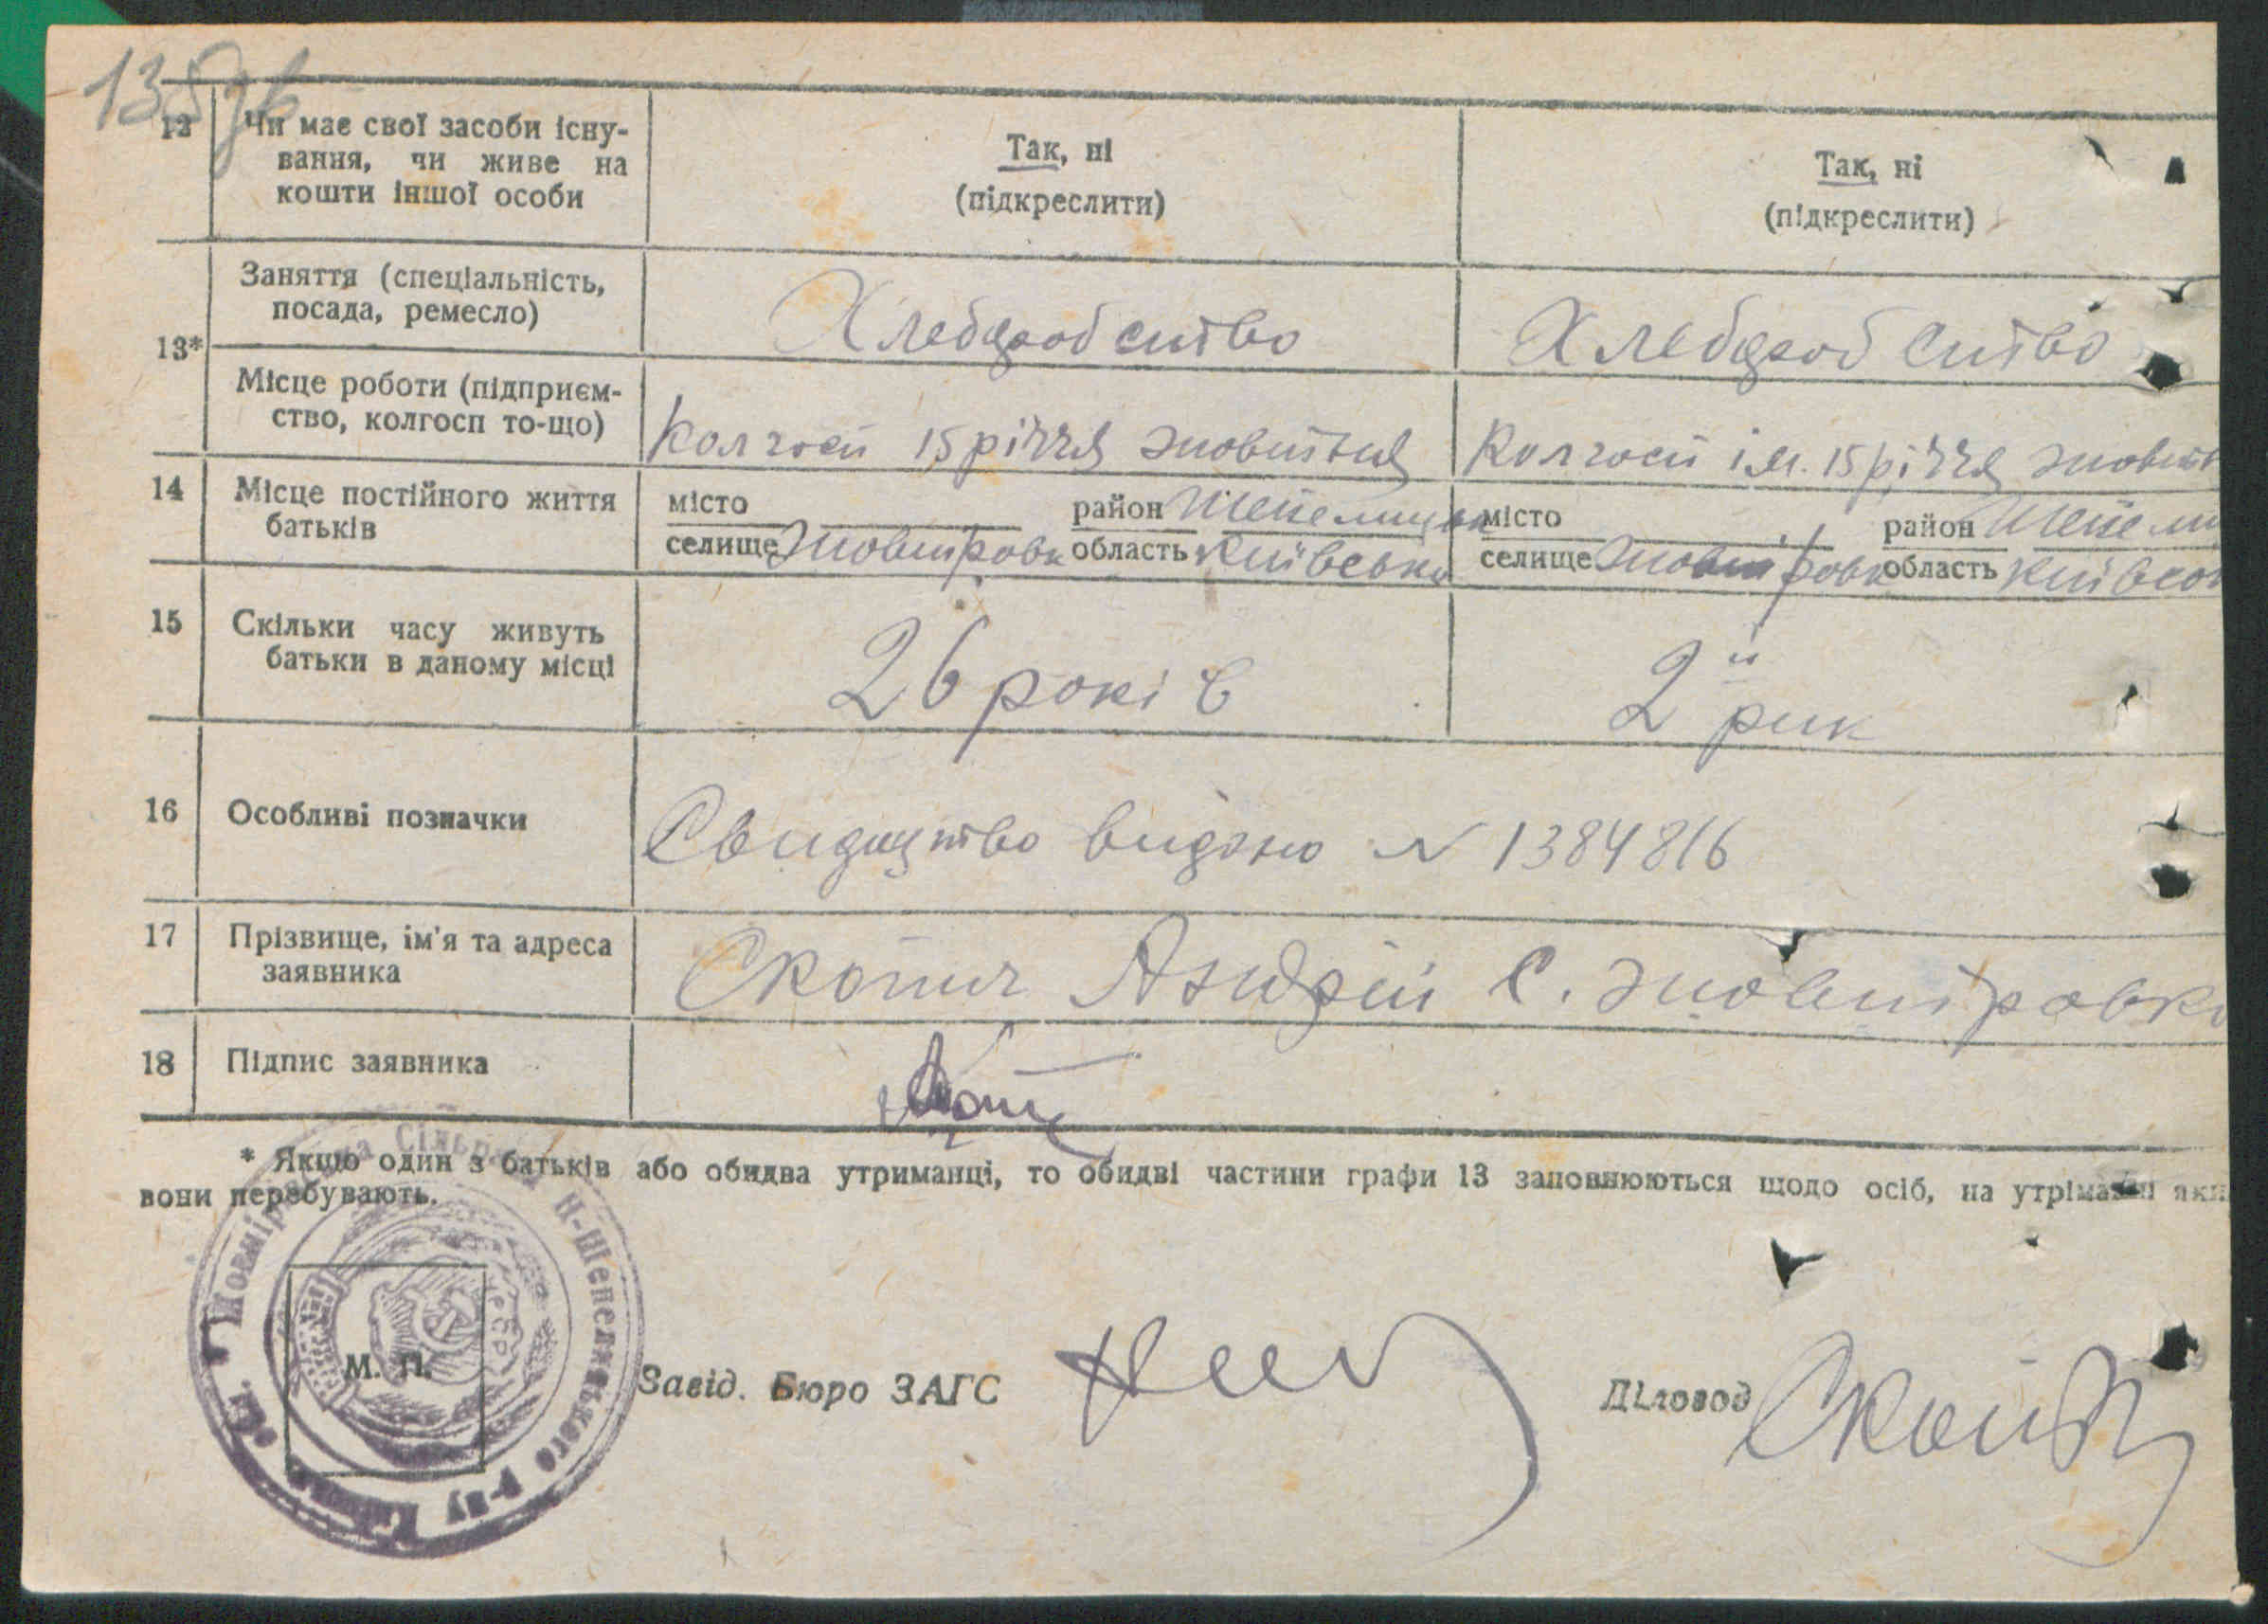 135зв
12 Чи має свої засоби існу-
вання, чи живе на
кошти іншої особи
Так, ні
(підкреслити)
Так, ні
(підкреслити)
13*
Заняття (спеціальність,
посада, ремесло)
Хлебдробситво
Хлебдробситво
Місце роботи (підприєм-
ство, колгосп то-що)
Колгосп 15 річчя жовтня
Колгосп ім. 15 річчя
14 Місце постійного життя
батьків
місто район
селище область Київська
місто район
селище область
15 Скільки часу живуть
батьки в даному місці
26 років
2й рик
16 Особливі позначки
Свидуцтво видано N 1384816
17 Прізвище, ім'я та адреса
заявника
Андрій С.
18 Підпис заявника
* Якщо один з батьків або обидва утриманці, то обидві частини графи 13 заповнюються щодо осіб, на утріманні яки
вони перебувають.
М. П.
Завід. Бюро ЗАГС
Діловод